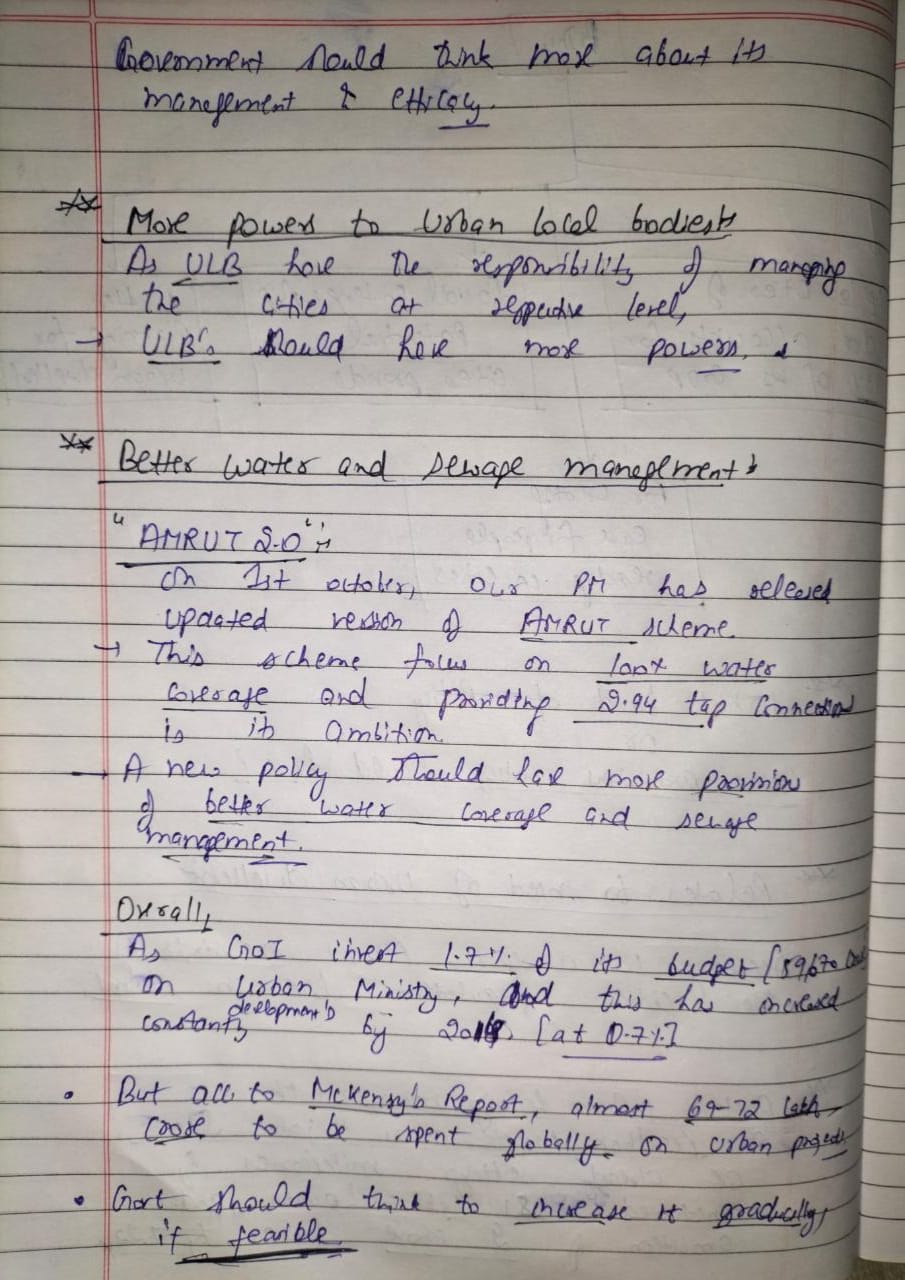 Government should think more about its
management & efficacy.
** More powers to Urban local bodies:
As ULB have the responsibility of managing
the cities at respective level,
→ ULB's should have more powers.
** Better water and sewage management:
"AMRUT 2.0":
On 1st october, our PM has released
updated version of AMRUT scheme.
→ This scheme focus on 100% water
coverage and providing 2.94 tap connection
is its ambition.
→ A new policy should have more provision
of better water coverage and sewage
management.
Overall,
As GoI invest 1.7% of its budget [
on Urban Ministry, and this has increased
development's
constantly by [at 0.7%]
• But acc. to McKensy's Report, almost 69-72 lakh
crose to be spent globally on urban projects
• Govt should think to increase it gradually,
if feasible